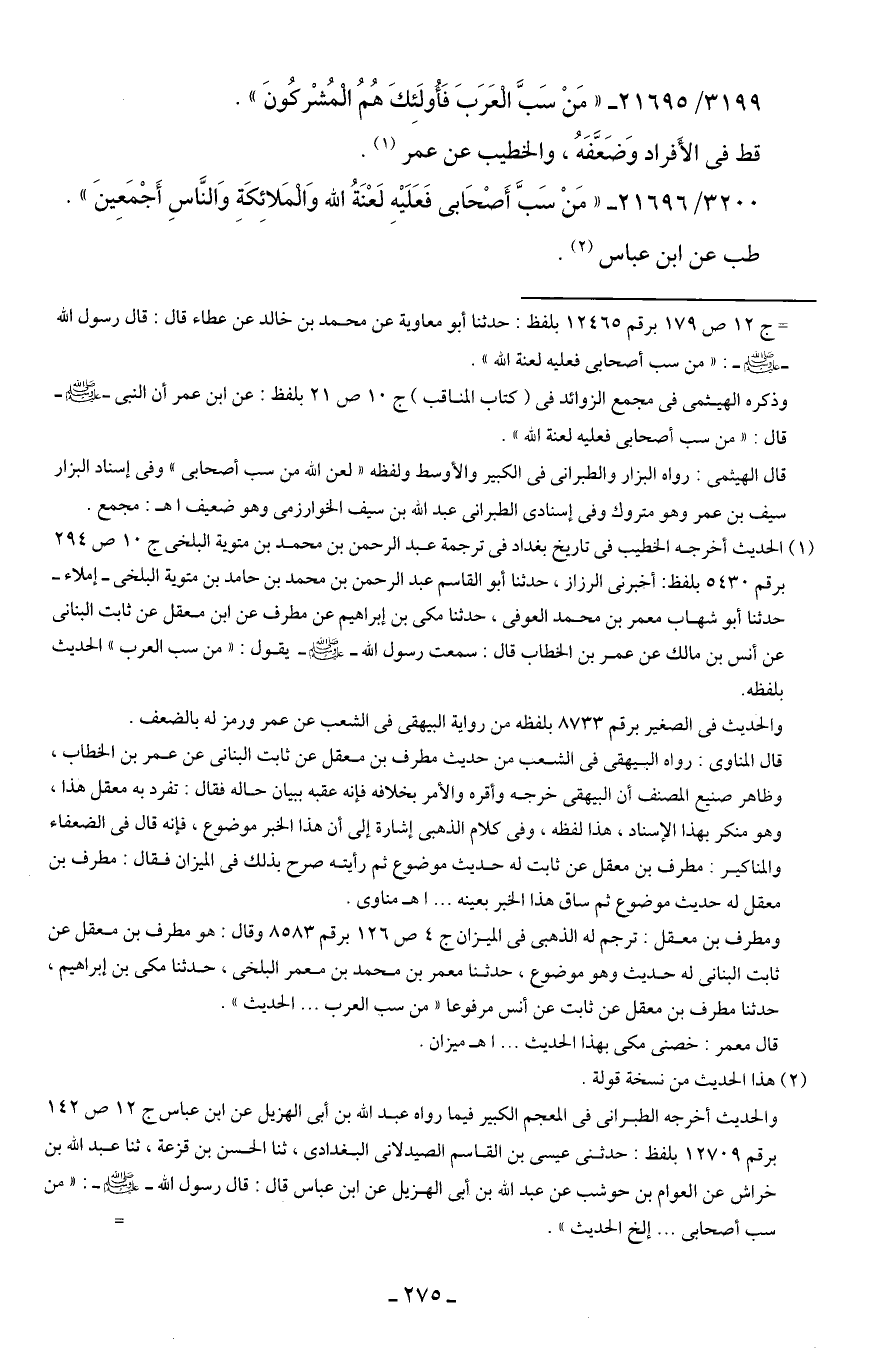 ٣١٩٩/ ٢١٦٩٥ـ « مَنْ سَبَّ الْعَرَبَ فَأُولَئِكَ هُمُ الْمُشْرِكُونَ » .
قط فى الأَفراد وَضَعَّفَهُ ، والخطيب عن عمر (١) .
٣٢٠٠/ ٢١٦٩٦ـ « مَنْ سَبَّ أَصْحَابِى فَعَلَيْهِ لَعْنَةُ الله وَالْمَلائِكَةِ وَالنَّاسِ أَجْمَعِينَ » .
طب عن ابن عباس (٢) .
= ج ١٢ ص ١٧٩ برقم ١٢٤٦٥ بلفظ : حدثنا أبو معاوية عن محمد بن خالد عن عطاء قال : قال رسول الله
ـ ﷺ ـ : « من سب أصحابى فعليه لعنة الله » .
وذكره الهيثمى فى مجمع الزوائد فى ( كتاب المناقب ) ج ١٠ ص ٢١ بلفظ : عن ابن عمر أن النبى ـ ﷺ ـ
قال : « من سب أصحابى فعليه لعنة الله » .
قال الهيثمى : رواه البزار والطبرانى فى الكبير والأوسط ولفظه « لعن الله من سب أصحابى » وفى إسناد البزار
سيف بن عمر وهو متروك وفى إسنادى الطبرانى عبد الله بن سيف الخوارزمى وهو ضعيف ا هـ : مجمع .
(١) الحديث أخرجه الخطيب فى تاريخ بغداد فى ترجمة عبد الرحمن بن محمد بن متوية البلخى ج ١٠ ص ٢٩٤
برقم ٥٤٣٠ بلفظ: أخبرنى الرزاز ، حدثنا أبو القاسم عبد الرحمن بن محمد بن حامد بن متوية البلخى ـ إملاء ـ
حدثنا أبو شهاب معمر بن محمد العوفى ، حدثنا مكى بن إبراهيم عن مطرف عن ابن معقل عن ثابت البنانى
عن أنس بن مالك عن عمر بن الخطاب قال : سمعت رسول الله ـ ﷺ ـ يقول : « من سب العرب » الحديث
بلفظه.
والحديث فى الصغير برقم ٨٧٣٣ بلفظه من رواية البيهقى فى الشعب عن عمر ورمز له بالضعف .
قال المناوى : رواه البيهقى فى الشعب من حديث مطرف بن معقل عن ثابت البنانى عن عمر بن الخطاب ،
وظاهر صنيع المصنف أن البيهقى خرجه وأقره والأمر بخلافه فإنه عقبه ببيان حاله فقال : تفرد به معقل هذا ،
وهو منكر بهذا الإسناد ، هذا لفظه ، وفى كلام الذهبى إشارة إلى أن هذا الخبر موضوع ، فإنه قال فى الضعفاء
والمناكير : مطرف بن معقل عن ثابت له حديث موضوع ثم رأيته صرح بذلك فى الميزان فقال : مطرف بن
معقل له حديث موضوع ثم ساق هذا الخبر بعينه ... ا هـ مناوى .
ومطرف بن معقل : ترجم له الذهبى فى الميزان ج ٤ ص ١٢٦ برقم ٨٥٨٣ وقال : هو مطرف بن معقل عن
ثابت البنانى له حديث وهو موضوع ، حدثنا معمر بن محمد بن معمر البلخى ، حدثنا مكى بن إبراهيم ،
حدثنا مطرف بن معقل عن ثابت عن أنس مرفوعا « من سب العرب ... الحديث » .
قال معمر : خصنى مكى بهذا الحديث ... ا هـ ميزان .
(٢) هذا الحديث من نسخة قولة .
والحديث أخرجه الطبرانى فى المعجم الكبير فيما رواه عبد الله بن أبى الهزيل عن ابن عباس ج ١٢ ص ١٤٢
برقم ١٢٧٠٩ بلفظ : حدثنى عيسى بن القاسم الصيدلانى البغدادى ، ثنا الحسن بن قزعة ، ثنا عبد الله بن
خراش عن العوام بن حوشب عن عبد الله بن أبى الهزيل عن ابن عباس قال : قال رسول الله ـ ﷺ ـ : « من
سب أصحابى ... إلخ الحديث » . =
ـ ٢٧٥ ـ